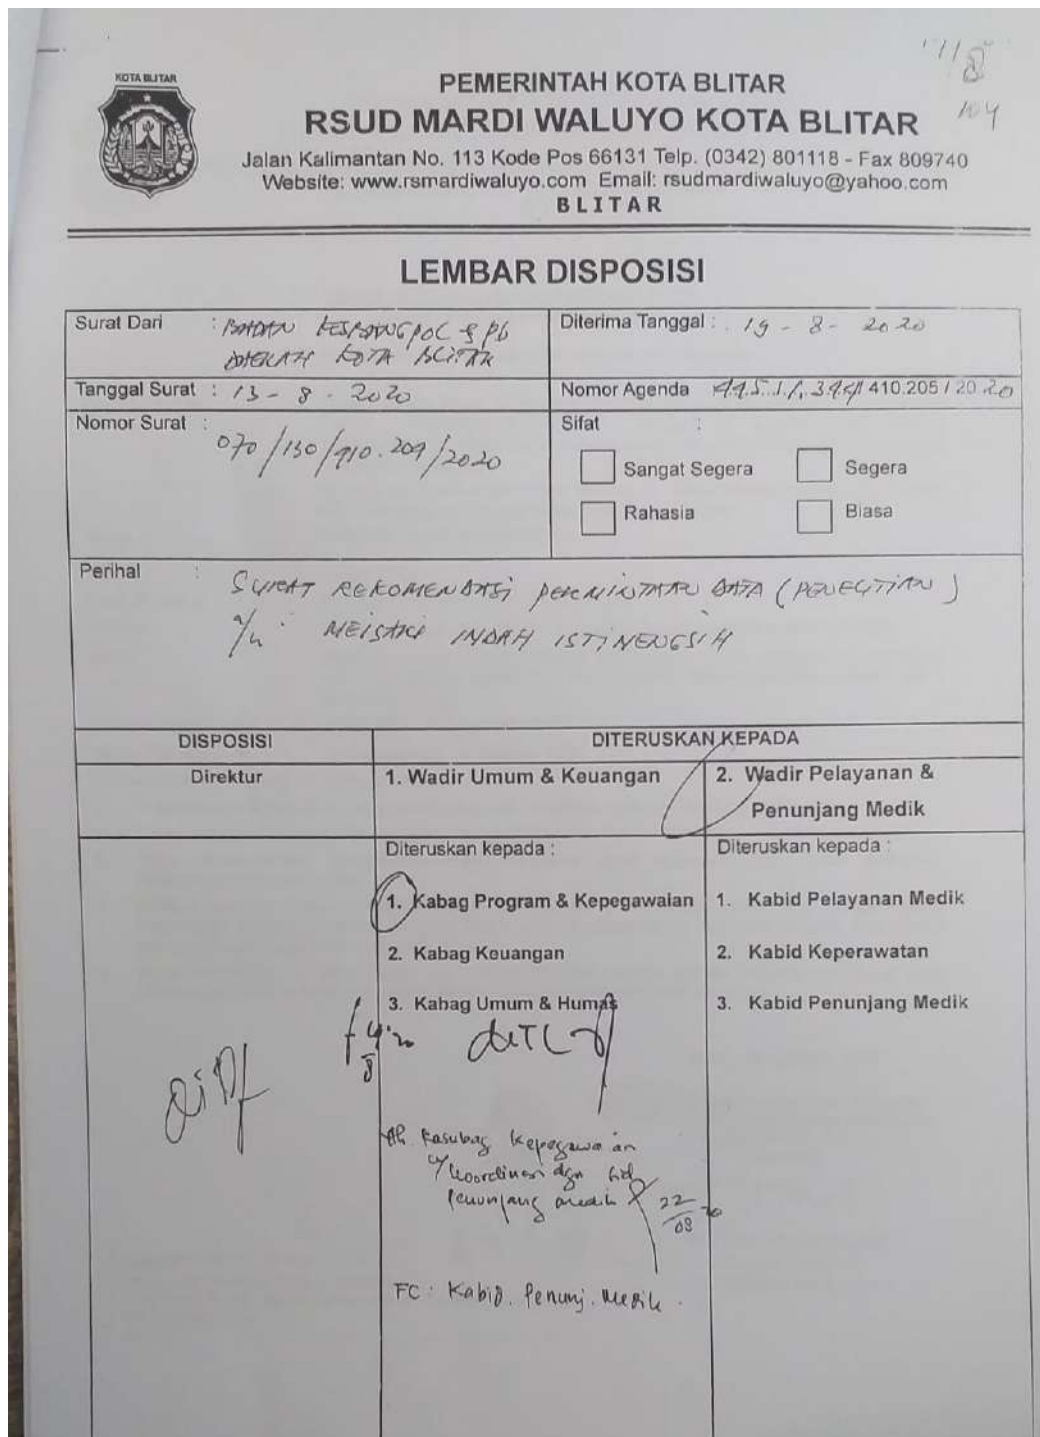 KOTA BLITAR
PEMERINTAH KOTA BLITAR
RSUD MARDI WALUYO KOTA BLITAR
104
Jalan Kalimantan No. 113 Kode Pos 66131 Telp. (0342) 801118 - Fax 809740
Website: www.rsmardiwaluyo.com Email: rsudmardiwaluyo@yahoo.com
BLITAR
LEMBAR DISPOSISI
Surat Dari : BADAN KESBANGPOL & PB
DAERAH KOTA BLITAR
Diterima Tanggal : 19 - 8 - 2020
Tanggal Surat : 13 - 8 - 2020
Nomor Agenda 410.205 / 20 20
Nomor Surat : 070/130/410.209/2020
Sifat :
Sangat Segera Segera
Rahasia Biasa
Perihal : SURAT REKOMENDASI PERMINTAAN DATA (PENELITIAN)
a/n : MEISAKI INDAH ISTINENGSIH
DISPOSISI DITERUSKAN KEPADA
Direktur 1. Wadir Umum & Keuangan 2. Wadir Pelayanan &
Penunjang Medik
Diteruskan kepada : Diteruskan kepada :
1. Kabag Program & Kepegawaian 1. Kabid Pelayanan Medik
2. Kabag Keuangan 2. Kabid Keperawatan
3. Kabag Umum & Humas 3. Kabid Penunjang Medik
Kasubag Kepegawaian
koordinasi dgn bid
penunjang medik 22/08 20
FC : Kabid. Penunj. Medik.